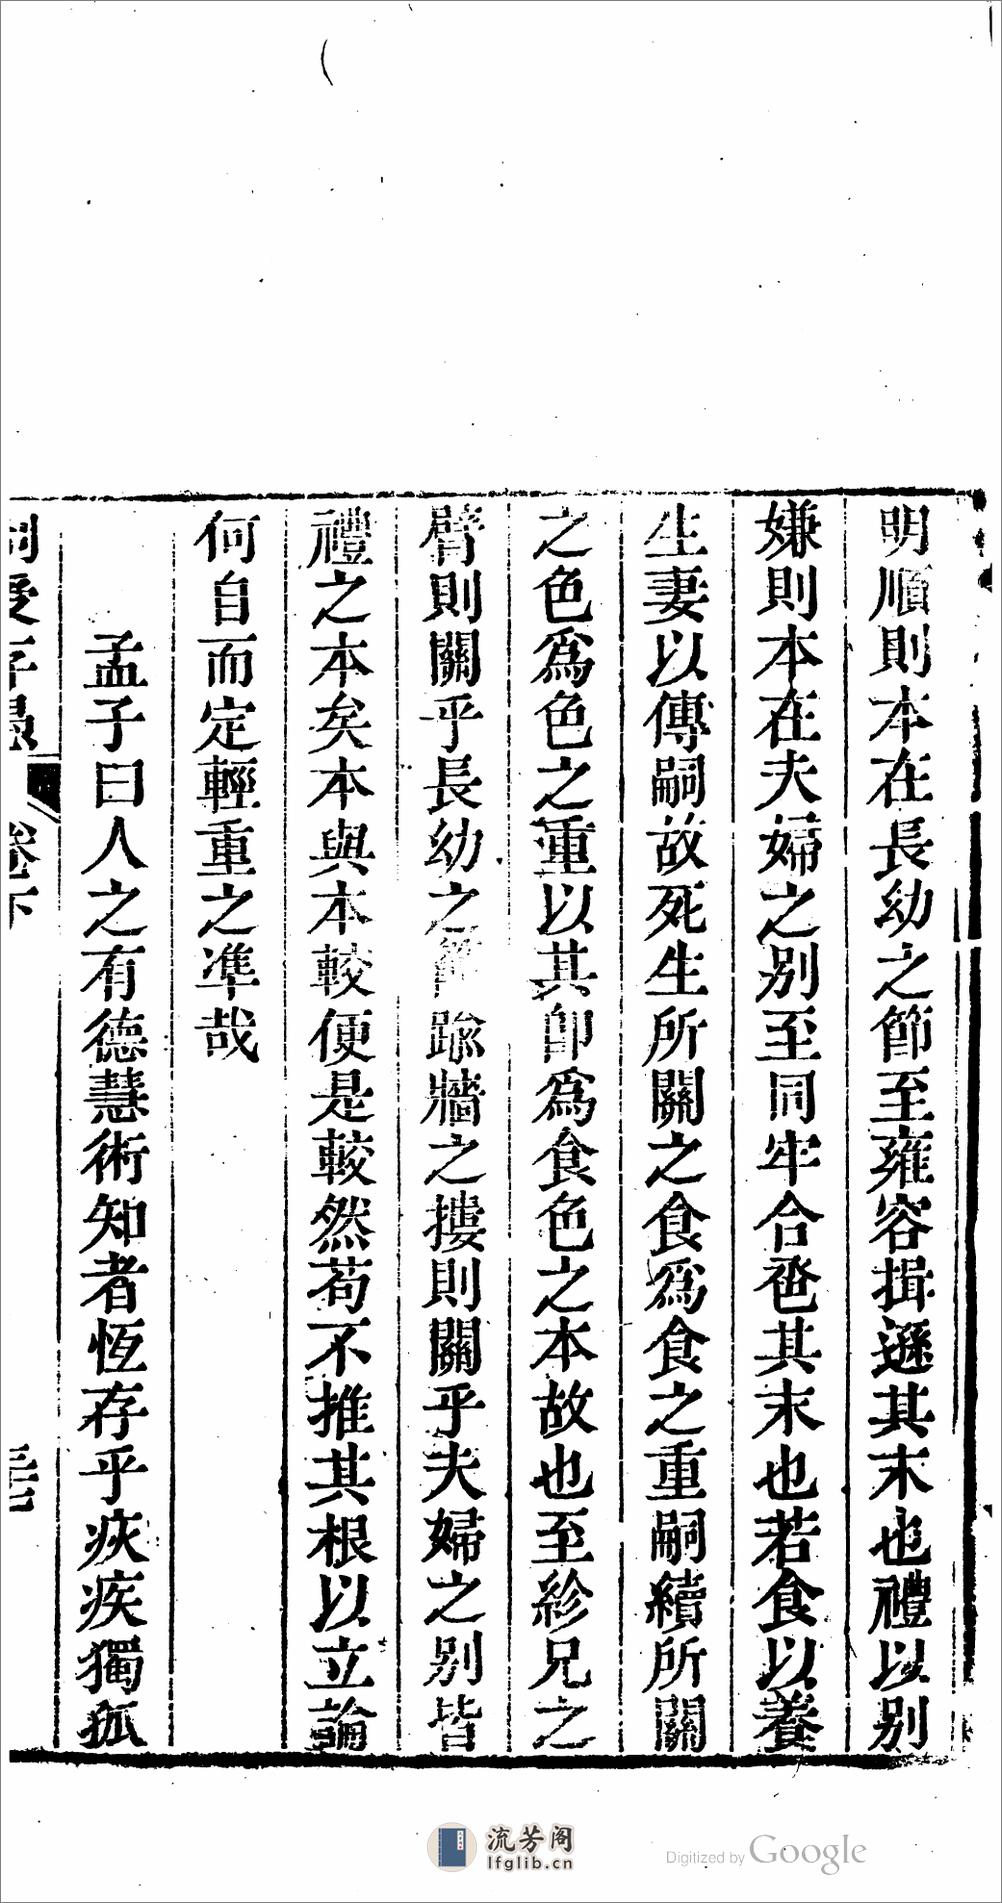 明順則本在長幼之節至雍容揖遜其末也禮以别
嫌則本在夫婦之别至同牢合卺其末也若食以養
生妻以傳嗣故死生所關之食爲食之重嗣續所關
之色爲色之重以其卽爲食色之本故也至紾兄之
臂則關乎長幼之節踰牆之摟則關乎夫婦之别皆
禮之本矣本與本較便是較然苟不推其根以立論
何自而定輕重之準哉
孟子曰人之有德慧術知者恆存乎疢疾獨孤
卷下
流芳阁
lfglib.cn
Digitized by Google